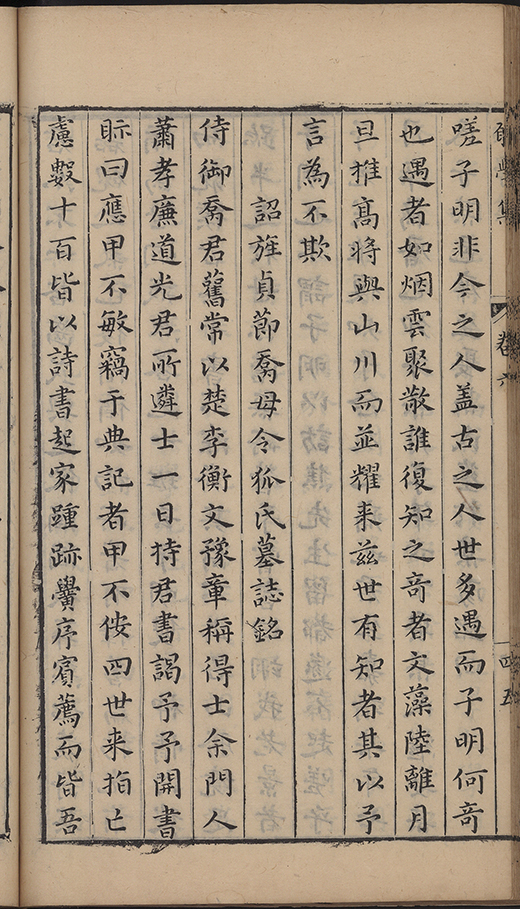 卷六
四五
嗟子明非今之人盖古之人世多遇而子明何竒
也遇者如烟雲聚散誰復知之竒者文藻陸離月
旦推髙將與山川而並耀来兹世有知者其以予
言為不欺
詔旌貞節喬母令狐氏墓誌銘
侍御喬君舊常以楚李衡文豫章稱得士余門人
蕭孝廉道光君所遴士一日持君書謁予予開書
眎曰應甲不敏竊于典記者甲不佞四世来指亡
慮數十百皆以詩書起家踵跡黌序賓薦而皆吾